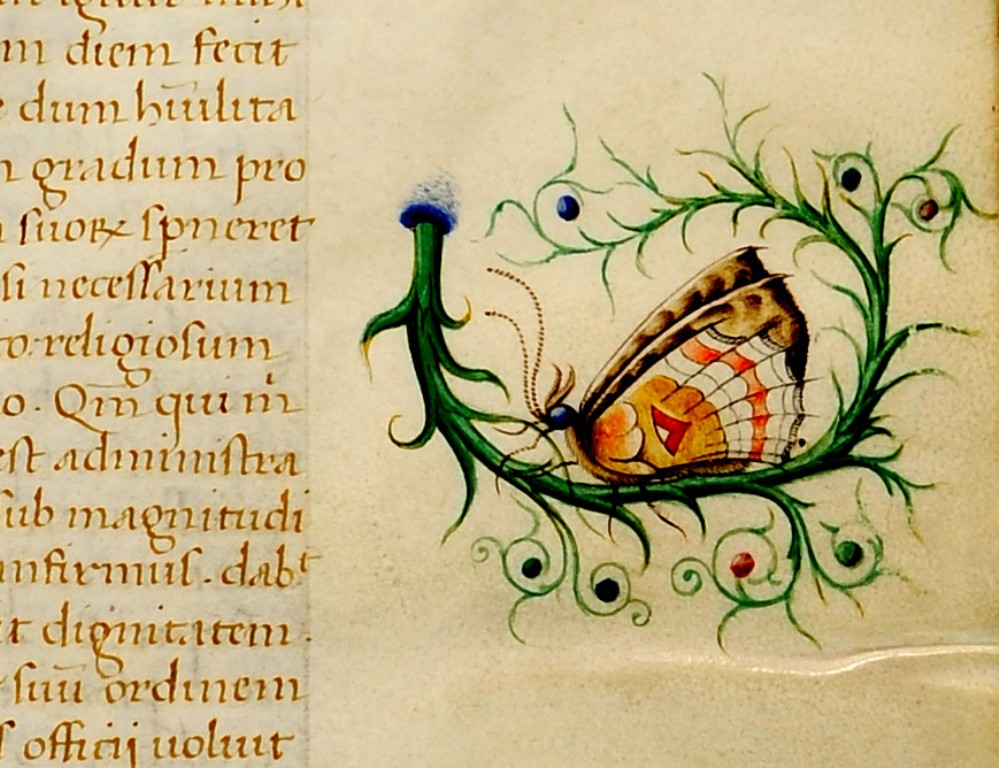 m diem fecit
dum hūilita
gradum pro
suoꝝ sꝑneret
si necessarium
to religiosum
o. Qm̄ qui in
est administra
sub magnitudi
infirmus. dabᵗ
it dignitatem.
suū ordinem
officij uoluit